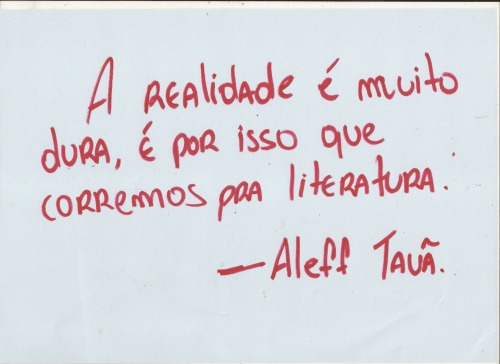 A REALIDADE É MUITO
DURA, É POR ISSO QUE
CORREMOS PRA LITERATURA.
— Aleff Tauã.